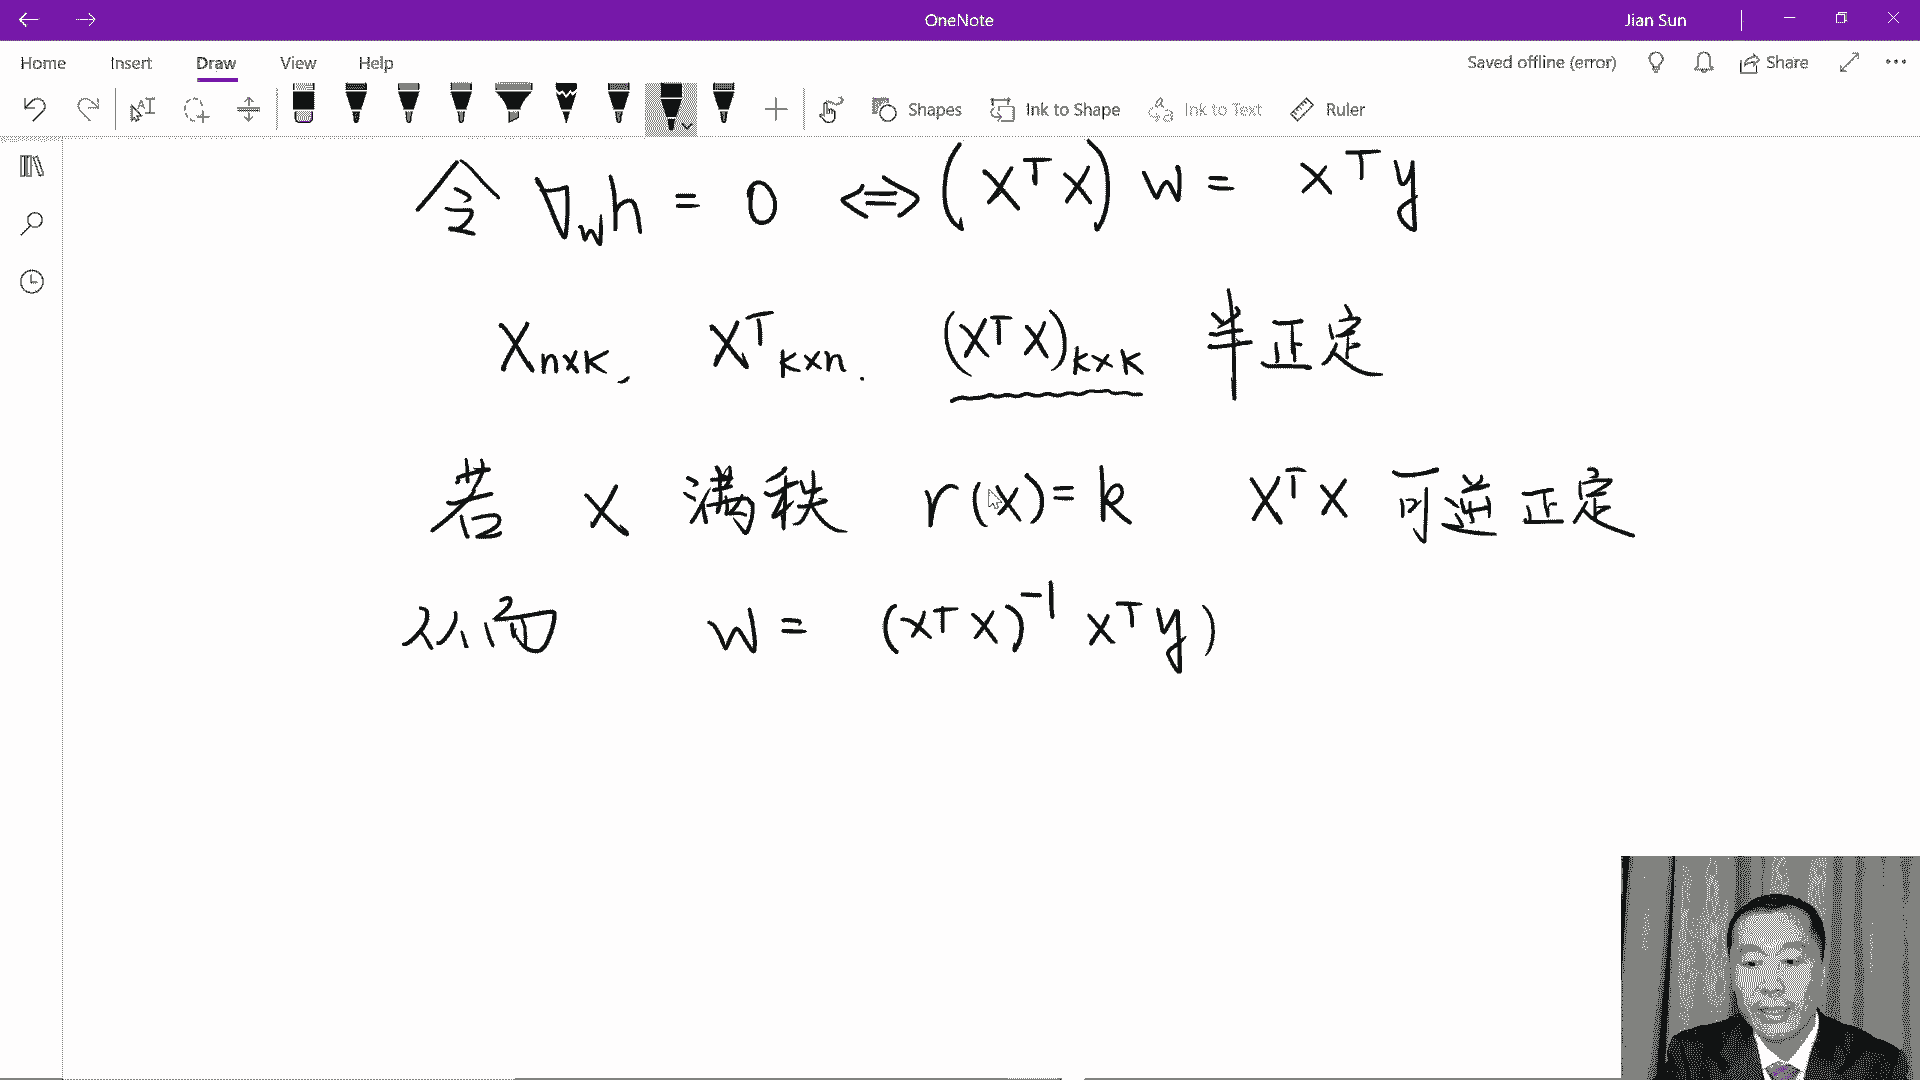 OneNote
Jian Sun
Home Insert Draw View Help
Saved offline (error) Share
Shapes Ink to Shape Ink to Text Ruler
令 ∇_w h = 0 ⇔ (X^T X) w = X^T y
X_{n×k}, X^T_{k×n}. (X^T X)_{k×k} 半正定
若 X 满秩 r(X) = k X^T X 可逆 正定
从而 w = (X^T X)^{-1} X^T y)